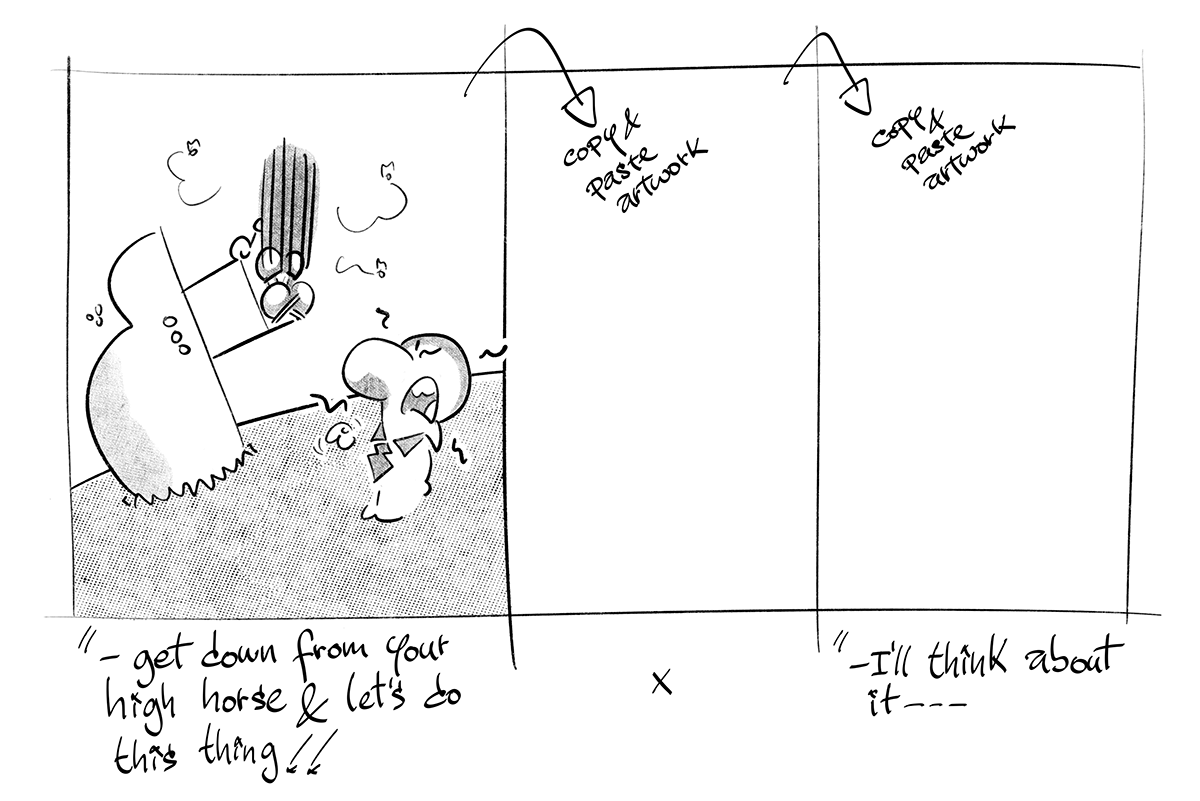 copy &
paste
artwork
copy &
paste
artwork
"- get down from your
high horse & let's do
this thing!!
x
"-I'll think about
it---